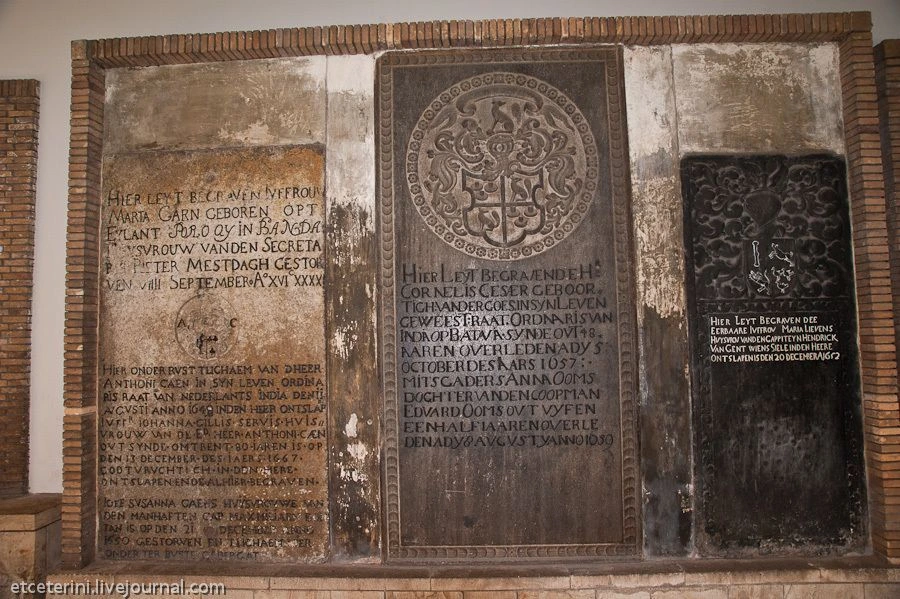 HIER LEYT BEGRAVEN IVFFROUW
MARIA GARN GEBOREN OPT
EYLANT IN BANDA
HUYSVROUW VANDEN SECRETA
PIETER MESTDAGH GESTOR
VEN VIII SEPTEMBER Aº XVI XXXX
A C
HIER ONDER RUST T LICHAEM VAN D'HEER
ANTHONI CAEN IN SYN LEVEN ORDINA
RIS RAAT VAN NEDERLANTS INDIA DEN
AUGUSTI ANNO 1649 INDEN HEER ONTSLAP
IUFFR IOHANNA GILLIS SERVIS HUIS
VROUW VAN DE ER HEER ANTHONI CÆN
OUT SYNDE OMTRENT 80 IAREN IS OP
DEN 13 DECEMBER DES IAERS 1667
GODTVRUCHTICH IN DEN HERE
ONTSLAPEN ENDE ALHIER BEGRAVEN
SUSANNA CAENS HUYSVROUWE VAN
DEN MANHAFTEN CAP
TAN IS OP DEN 21 DECEMBER ANNO
1650 GESTORVEN EN T LICHAEM
ONDER TER RUSTE GEBRACHT
HIER LEYT BEGRAVEN DE HR
CORNELIS CESER GEBOOR
TICH VANDER GOES IN SYN LEVEN
GEWEEST RAAT ORDINARIS VAN
INDIA OP BATAVIA SYNDE OUT 48
IAAREN OVERLEDEN ADY 5
OCTOBER DES AARS 1657:
MITSGADERS ANNA OOMS
DOCHTER VANDEN COOPMAN
EDVARD OOMS OVT VYF EN
EEN HALF IAAREN OVERLE
DEN ADY 8 AUGUSTY ANNO 1650
HIER LEYT BEGRAVEN DEE
EERBAARE IUFFROU MARIA LIEVENS
HUYSUROU VAN DEN CAPPITEYN HENDRICK
VAN GENT WIENS SIELE IN DEN HEERE
ONTSLAPEN IS DEN 20 DECEMBER A 1652
etceterini.livejournal.com/